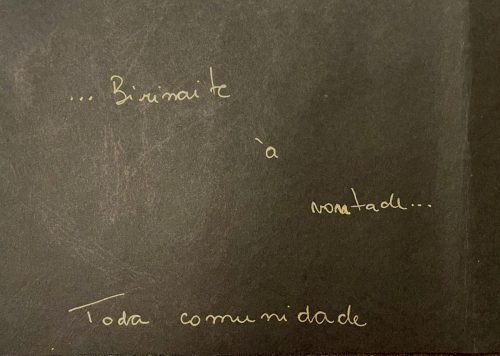 ... Birinaite
à
vontade...
Toda comunidade